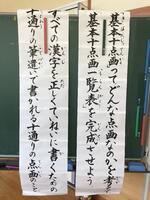 基本十点画ってどんな点画なのかを考え
基本十点画一覧表を完成させよう
すべての漢字を正しくていねいに書くための
十通りの筆遣いで書かれる十通りの点画のこと